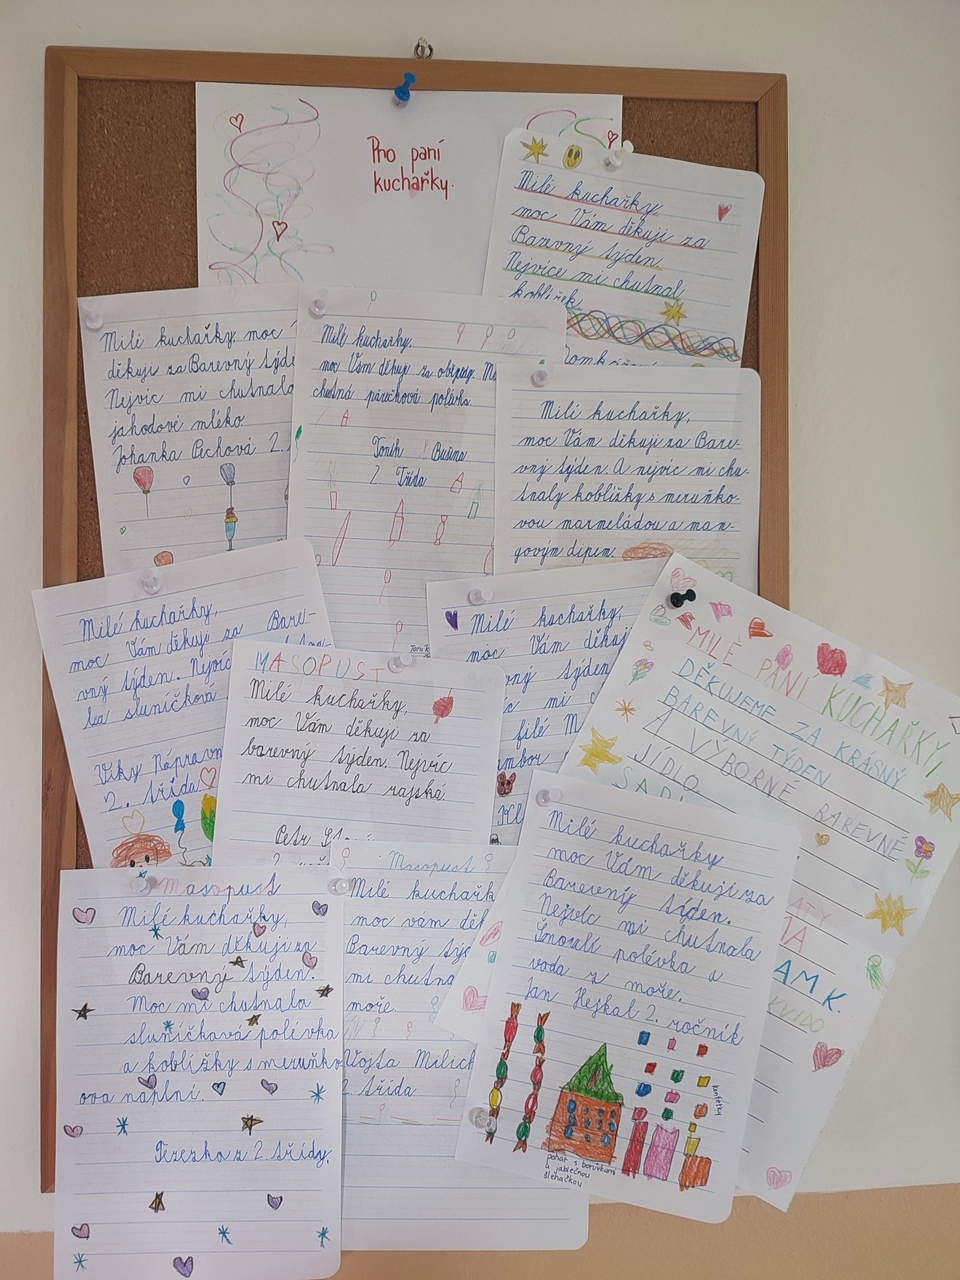 Pro paní
kuchařky.
Milé kuchařky,
moc Vám děkuji za
Barevný týden.
Nejvíce mi chutnal
koblížek.
Milé kuchařky, moc
děkuji za Barevný týde
Nejvíc mi chutnalo
jahodové mléko
Johanka Pechová 2.
Milé kuchařky,
moc Vám děkuji za
chutná polévka.
Toník
2. Třída
Milé kuchařky,
moc Vám děkuji za Bare-
vný týden. A nejvíc mi chu-
tnaly koblížky s meruňko-
vou marmeládou a man-
govým dipem.
Milé kuchařky,
moc Vám děkuji za Bare-
vný týden. Nejvíc
la sluníčková
Viky
2. třída
MASOPUST
Milé kuchařky,
moc Vám děkuji za
barevný týden. Nejvíc
mi chutnala rajská.
Petr
Milé kuchařky,
moc Vám děkuj
vný týden
c mi c
filé M
MILÉ PANÍ KUCHAŘKY,
DĚKUJEME ZA KRÁSNÝ
BAREVNÝ TÝDEN
A VÝBORNÉ BAREVNÉ
JÍDLO
KVIDO
Masopust
Milé kuchařky,
moc Vám děkuji za
Barevný týden.
Moc mi chutnala
sluníčkavá polévka
a koblížky s meruňko
ova náplní.
Terezka z 2. třídy.
Masopust
Milé kuchařk
moc vám děk
Barevný týd
mi chutna
moře.
Vojta Milich
2. třída
Milé kuchařky
moc Vám děkuji za
Barevný týden.
Nejvíc mi chutnala
Šmoulí polévka a
voda z moře.
Jan Hejkal 2. ročník
konfetky
pohár s borůvkami
a jablečnou
šlehačkou